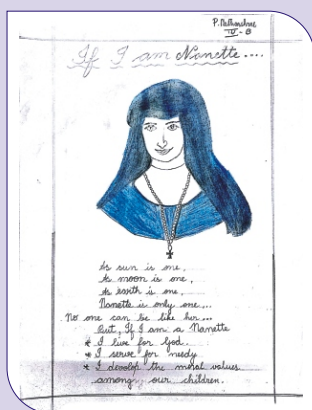 IV - B
If I am Nanette....
As sun is one,
As moon is one,
As Earth is one,
Nanette is only one...
No one can be like her...
But, If I am a Nanette
* I live for God.
* I serve for needy
* I develop the moral values
among our children.